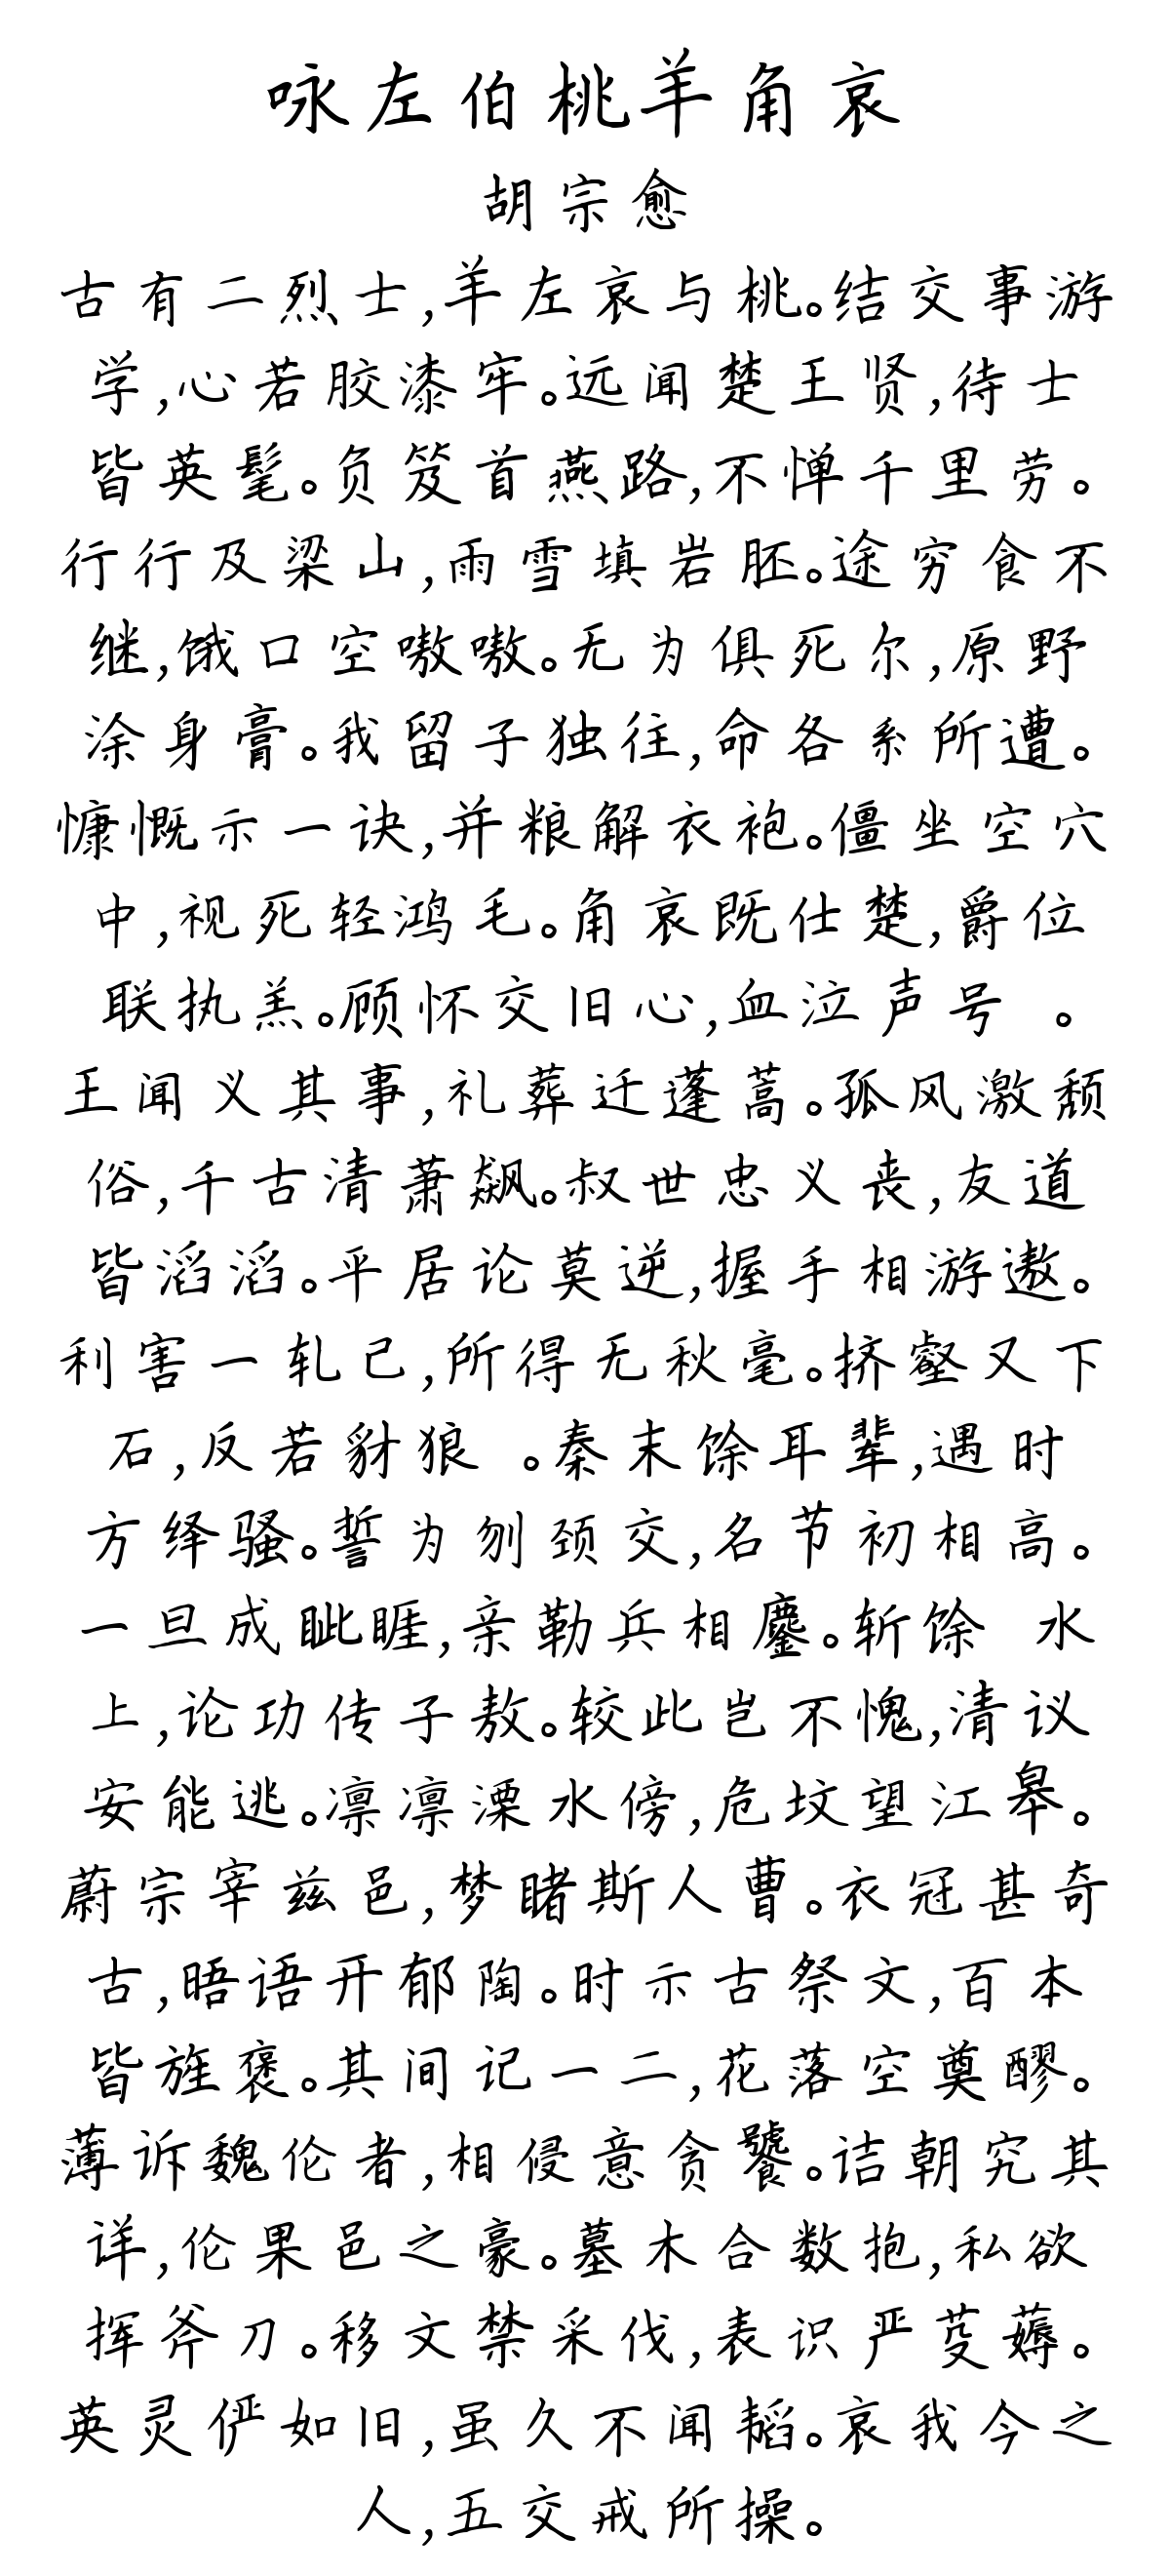 咏左伯桃羊角哀
胡宗愈
古有二烈士,羊左哀与桃。结交事游
学,心若胶漆牢。远闻楚王贤,待士
皆英髦。负笈首燕路,不惮千里劳。
行行及梁山,雨雪填岩胚。途穷食不
继,饿口空嗷嗷。无为俱死尔,原野
涂身膏。我留子独往,命各系所遭。
慷慨示一诀,并粮解衣袍。僵坐空穴
中,视死轻鸿毛。角哀既仕楚,爵位
联执羔。顾怀交旧心,血泣声号 。
王闻义其事,礼葬迁蓬蒿。孤风激颓
俗,千古清萧飙。叔世忠义丧,友道
皆滔滔。平居论莫逆,握手相游遨。
利害一轧己,所得无秋毫。挤壑又下
石,反若豺狼 。秦末馀耳辈,遇时
方绎骚。誓为刎颈交,名节初相高。
一旦成眦睚,亲勒兵相鏖。斩馀 水
上,论功传子敖。较此岂不愧,清议
安能逃。凛凛溧水傍,危坟望江皋。
蔚宗宰兹邑,梦睹斯人曹。衣冠甚奇
古,晤语开郁陶。时示古祭文,百本
皆旌褒。其间记一二,花落空奠醪。
薄诉魏伦者,相侵意贪饕。诘朝究其
详,伦果邑之豪。墓木合数抱,私欲
挥斧刀。移文禁采伐,表识严芟薅。
英灵俨如旧,虽久不闻韬。哀我今之
人,五交戒所操。